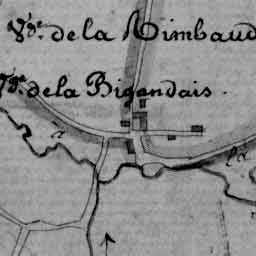 V.de de la Rimbaud
V.de de la Bigendais.